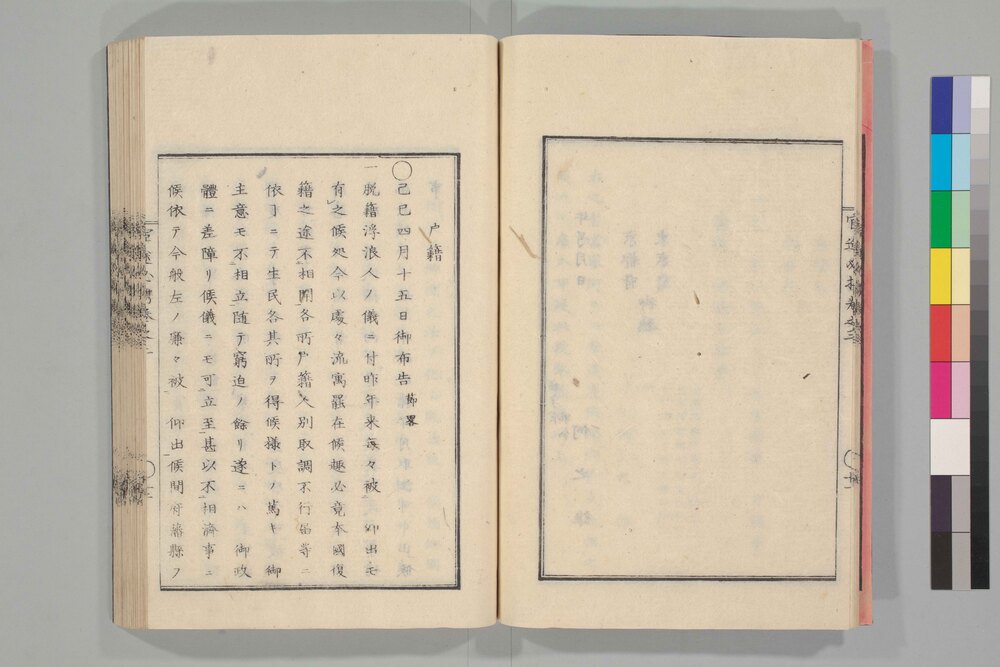 戸籍
◯己巳四月十五日御布告 節畧
一脱籍浮浪人ノ儀ニ付昨年来每々被 仰出モ
有之候処今以處々流寓罷在候趣必竟本國復
籍之途不相開各所戸籍人別取調不行届等ニ
依リニテ生民各其所ヲ得候樣トノ篤キ御
主意モ不相立随テ窮迫ノ餘リ遂ニハ御政
體ニ差障リ候儀ニモ可立至甚以不相濟事ニ
候依テ今般左ノ廉々被 仰出候間府藩縣ノ